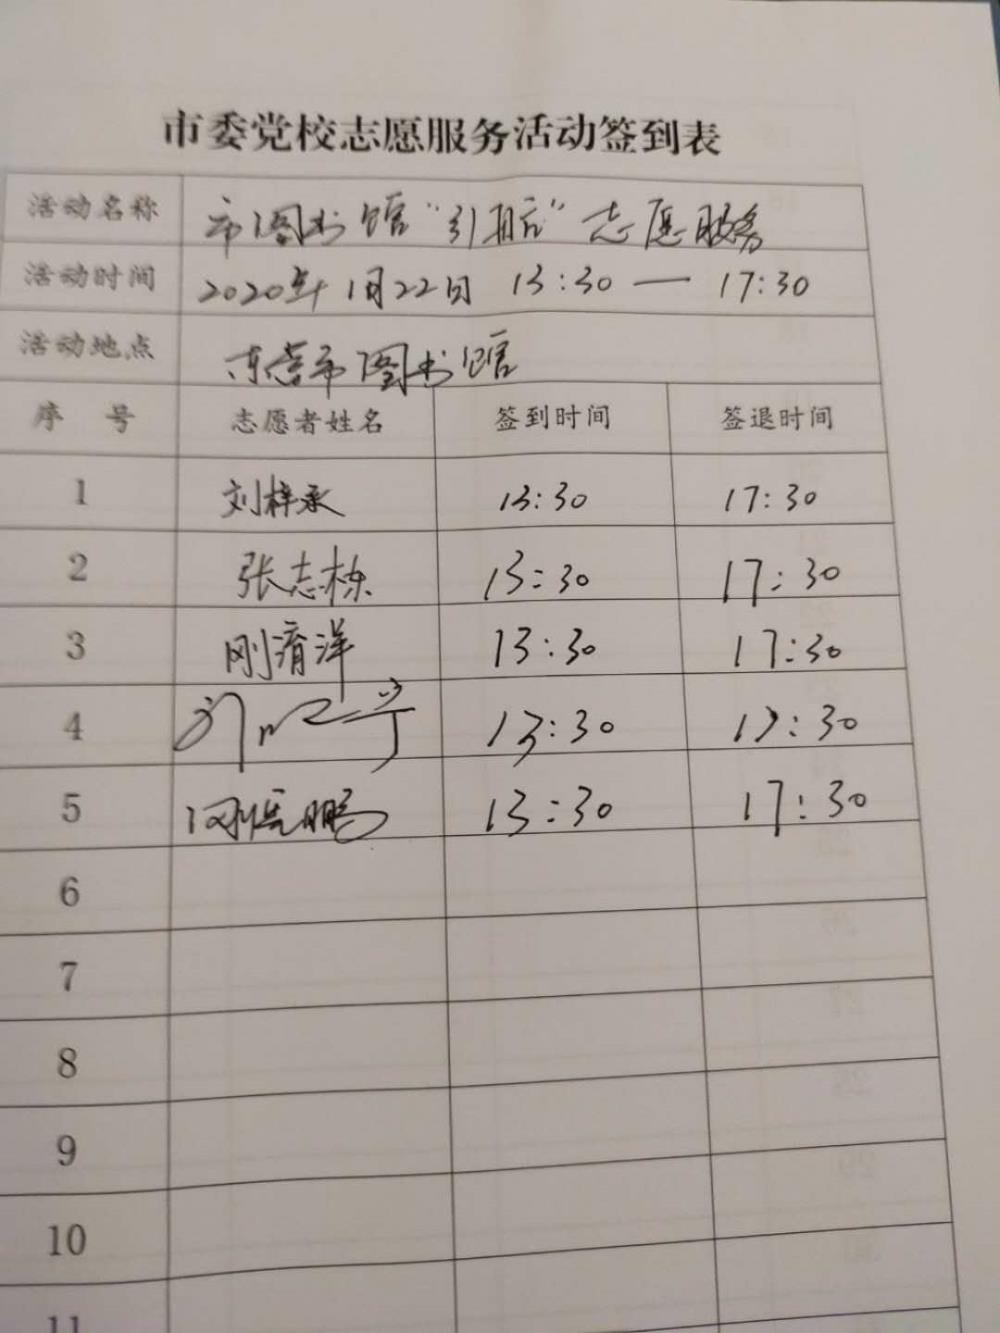 市委党校志愿服务活动签到表
活动名称 市图书馆“引航”志愿服务
活动时间 2020年1月22日 13:30 — 17:30
活动地点 东营市图书馆
序 号 志愿者姓名 签到时间 签退时间
1 刘梓承 13:30 17:30
2 张志栋 13:30 17:30
3 刚淯洋 13:30 17:30
4 13:30 17:30
5 13:30 17:30
6
7
8
9
10
11